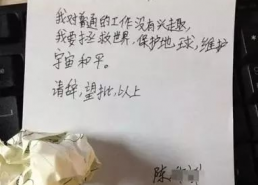 我对普通的工作没有兴趣,
我要拯救世界,保护地球,维护
宇宙和平。
请辞,望批,以上
陈